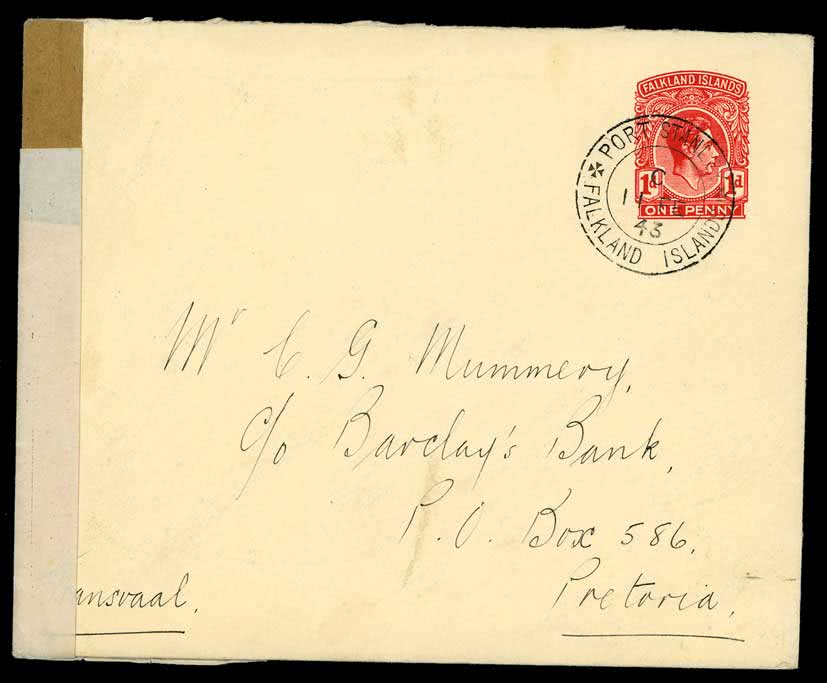 FALKLAND ISLANDS
1d 1d
ONE PENNY
PORT STANLEY
C
11
43
FALKLAND ISLANDS
Mr C. G. Mummery,
c/o Barclay's Bank,
P.O. Box 586,
Pretoria,
ansvaal.